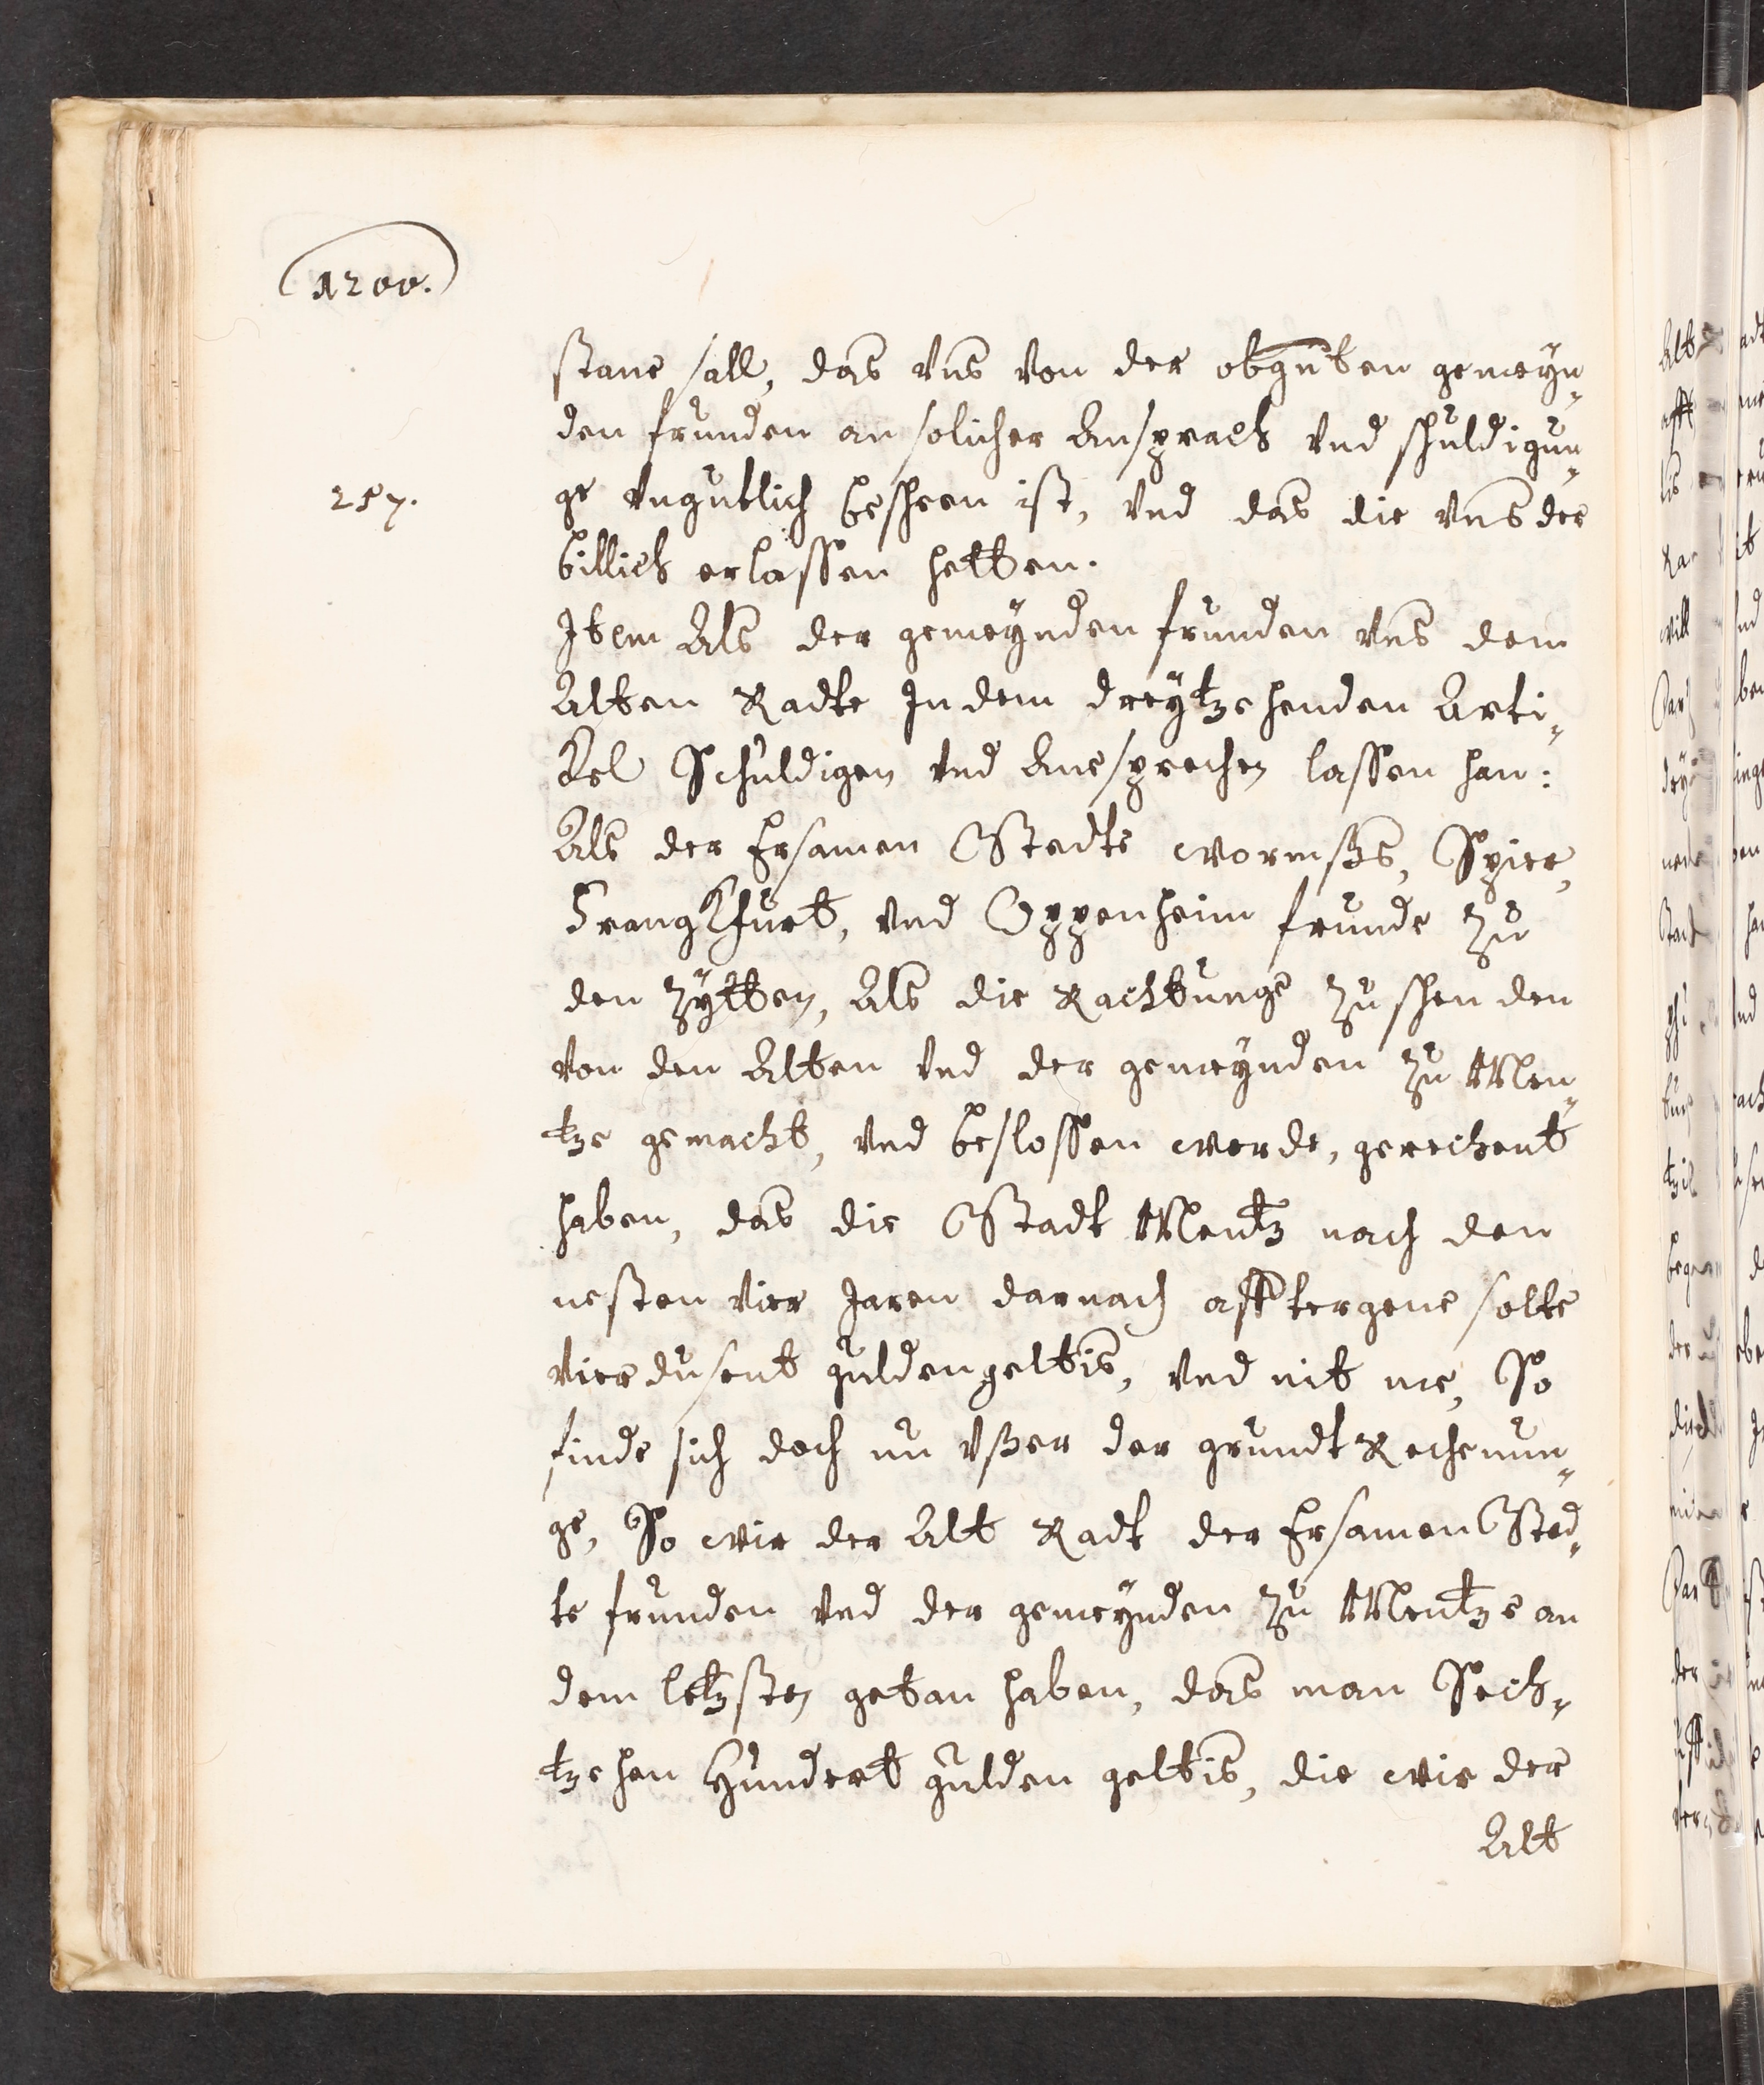 1200.
stane sall, das vns von der obgnten gemeyn„
den frunden an solicher Ansprach vnd schuldigun„
257.
ge vngutlich bescheen ist, vnd das die vns der
billich erlassen hetten.
Item Als der gemeynden frunden vns dem
Alten Radte In dem dreytzehenden Arti„
kel Schuldigen vnd Anesprechen lassen han:
Als der Ersamen Stedte wormßs, Spire,
Frangkfurt, vnd Oppenheim frunde zu
den zytten, Als die Rachtunge zuschen den
von den Alten vnd der gemeynden zu Men„
tze gemacht, vnd beslossen werde, gerechent
haben, das die Stadt Mentz nach den
nesten vier Jaren darnach afftergene solte
vierdusent guldengeltis, vnd nit me, So
finde sich doch nu vßer der grundt Rechenun„
ge, So wir der Alt Radt der Ersamen Sted„
te frunden vnd der gemeynden zu Mentze an
dem letzsten getan haben, das man Sech„
tzehen Hundert gulden geltis, die wir der
Alt